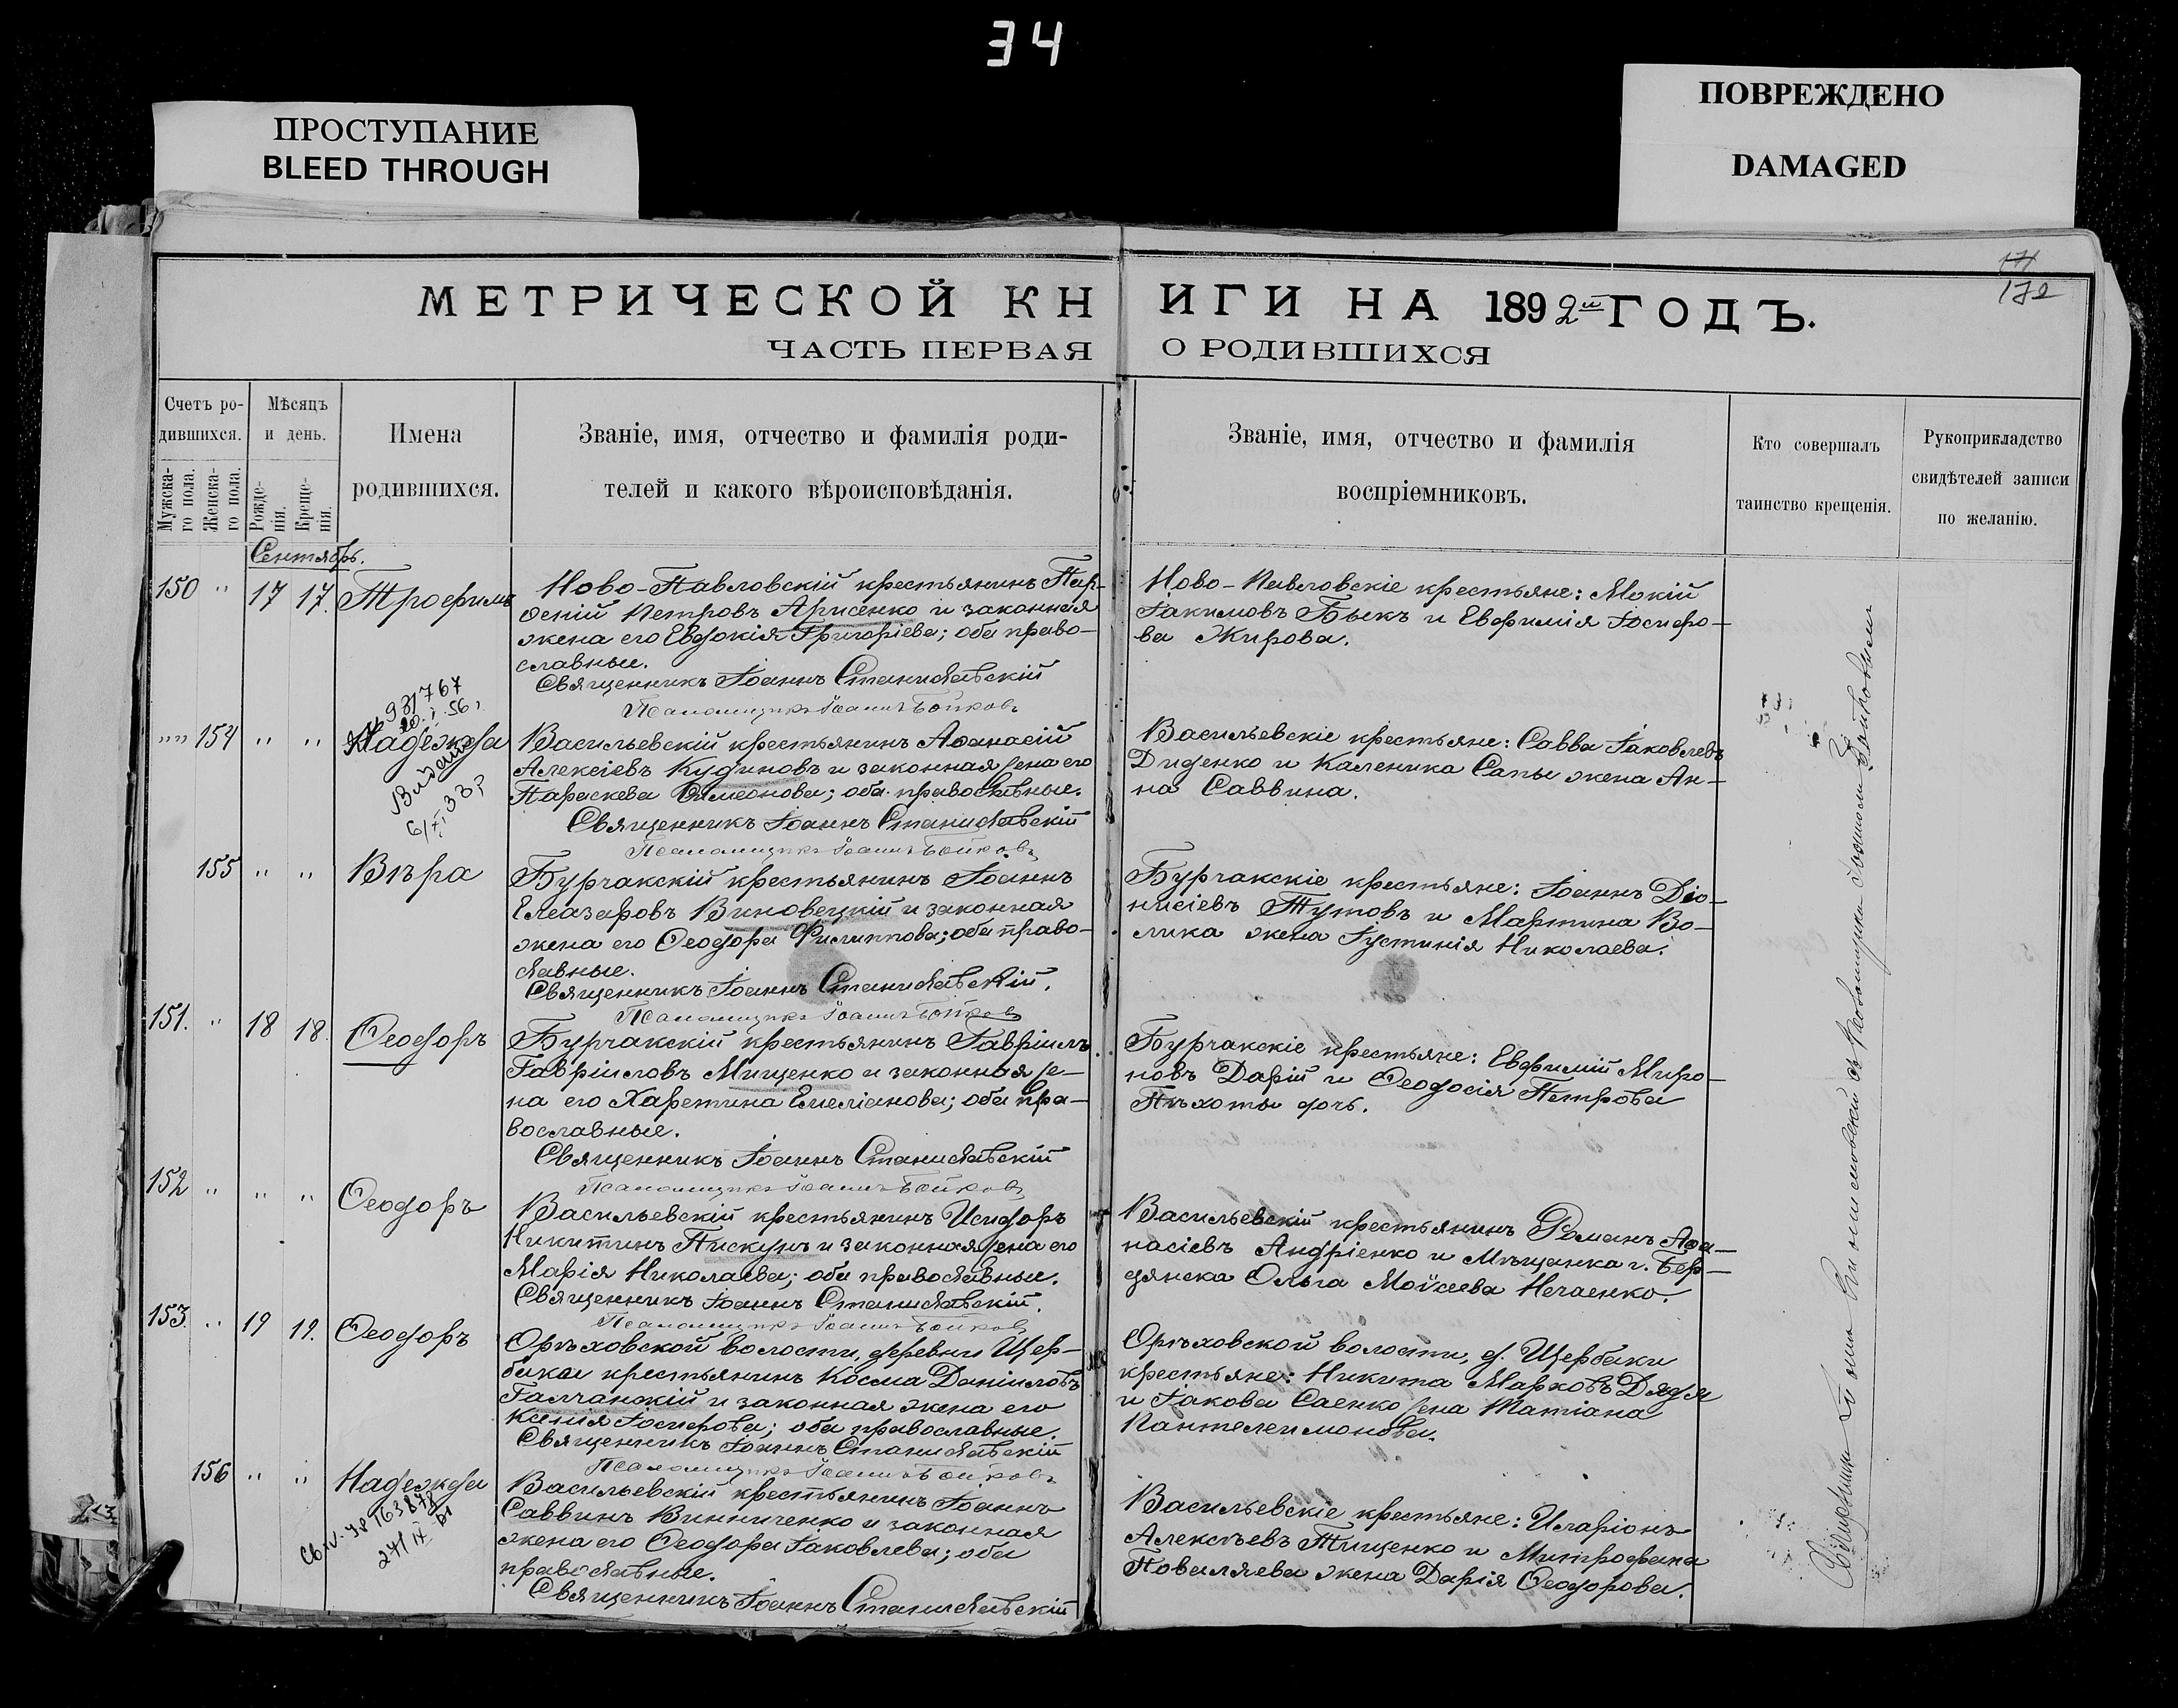 34
ПРОСТУПАНИЕ
BLEED THROUGH
ПОВРЕЖДЕНО
DAMAGED
171
172
МЕТРИЧЕСКОЙ КНИГИ НА 1892й ГОДЪ.
ЧАСТЬ ПЕРВАЯ О РОДИВШИХСЯ
Счетъ ро-
дившихся.
Мужска-
го пола.
Женска-
го пола.
Мѣсяцъ
и день.
Рожде-
нія.
Креще-
нія.
Имена
родившихся.
Званіе, имя, отчество и фамилія роди-
телей и какого вѣроисповѣданія.
Званіе, имя, отчество и фамилія
воспріемниковъ.
Кто совершалъ
таинство крещенія.
Рукоприкладство
свидѣтелей записи
по желанію.
Сентябрь.
150 " 17 17. Трофимъ
Ново-Павловскій крестьянинъ Пар-
ѳеній Петровъ Арисенко и законная
жена его Евдокія Григоріева; оба право-
славные.
Священникъ Іоаннъ Станиславскій
Псаломщикъ Іоаннъ Бойковъ
Ново-Павловскіе крестьяне: Мокій
Іакимовъ Быкъ и Евфимія Іосифо-
ва Жирова.
931767
20.I.56,
"" 154 " " Надежда
6/X 33
Васильевскій крестьянинъ Аѳанасій
Алексіевъ Кудиновъ и законная жена его
Параскева Симеонова; оба православные.
Священникъ Іоаннъ Станиславскій
Псаломщикъ Іоаннъ Бойковъ
Васильевскіе крестьяне: Савва Іаковлевъ
Диденко и Каленика Сапы жена Ан-
на Саввина.
155 " " Вѣра
Бурчакскій крестьянинъ Іоаннъ
Елеазаровъ Виновецкій и законная
жена его Ѳеодора Филиппова; оба право-
славные.
Священникъ Іоаннъ Станиславскій.
Псаломщикъ Іоаннъ Бойковъ
Бурчакскіе крестьяне: Іоаннъ Діо-
нисіевъ Тутовъ и Мартина Во-
лика жена Іустинія Николаева.
151. " 18 18. Ѳеодоръ
Бурчакскій крестьянинъ Гавріилъ
Гавріиловъ Мищенко и законная же-
на его Харетина Емеліанова; оба пра-
вославные.
Священникъ Іоаннъ Станиславскій
Псаломщикъ Іоаннъ Бойковъ
Бурчакскіе крестьяне: Евфимій Миро-
новъ Дарій и Ѳеодосія Петрова
Пѣхоты дочь.
152 " " " Ѳеодоръ
Васильевскій крестьянинъ Исидоръ
Никитинъ Пискунъ и законная жена его
Марія Николаева; оба православные.
Священникъ Іоаннъ Станиславскій.
Псаломщикъ Іоаннъ Бойковъ
Васильевскій крестьянинъ Романъ Аѳа-
насіевъ Андріенко и Мѣщанка г. Бер-
дянска Ольга Моѵсеева Нечаенко.
153. " 19 19. Ѳеодоръ
Орѣховской волости, деревни Щер-
баки крестьянинъ Косма Даніиловъ
Галчанскій и законная жена его
Ксенія Іосифова; оба православные.
Священникъ Іоаннъ Станиславскій
Псаломщикъ Іоаннъ Бойковъ
Орѣховской волости, д. Щербаки
крестьяне: Никита Марковъ Дядя
и Іакова Саенко жена Татіана
Пантелеимонова.
156 " " Надежда
27/IX
Васильевскій крестьянинъ Іоаннъ
Саввинъ Винниченко и законная
жена его Ѳеодора Іаковлева; оба
православные.
Священникъ Іоаннъ Станиславскій
Васильевскіе крестьяне: Иларіонъ
Алексѣевъ Тищенко и Митрофана
Поваляева жена Дарія Ѳеодорова.
Священникъ Іоаннъ Станиславскій съ Псаломщикомъ Іоанномъ Бойковымъ